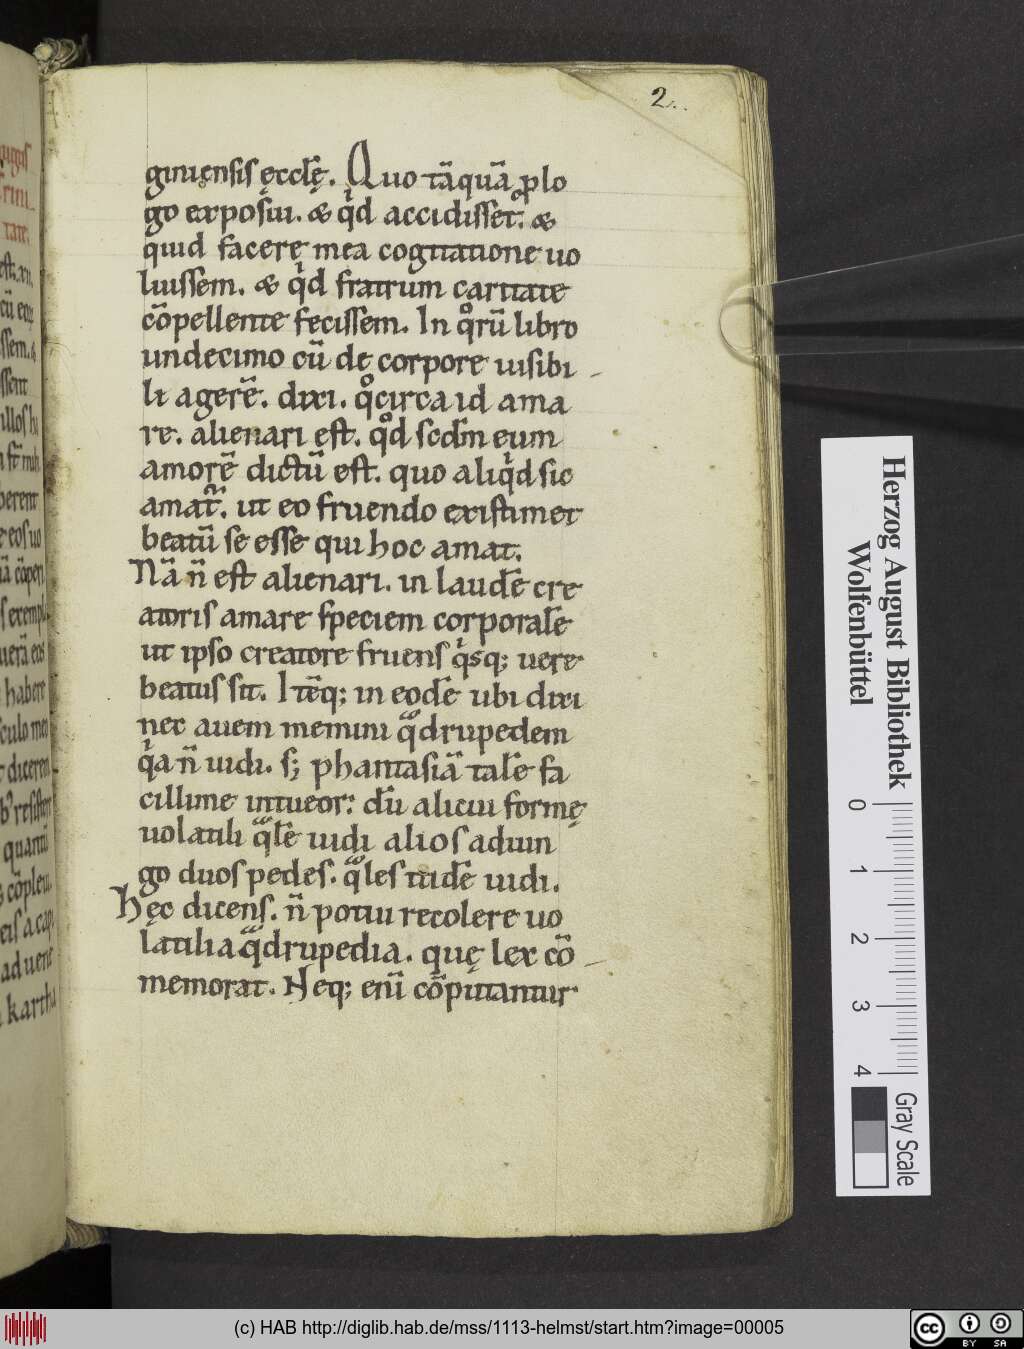 2.
giniensis ęcclę̄. Quo tāquā ꝓlo
go exposui. & qͥd accidisset. &
quid facere mea cogitatione uo
luissem. & qͥd fratrum caritate
cōpellente fecissem. In qͦrū libro
undecimo cū de corpore uisibi
li agerē. dixi. qͦcirca id ama
re. alienari est. qͦd scd̄m eum
amorē dictū est. quo aliqͥd sic
amat̄. ut eo fruendo existimet
beatū se esse qui hoc amat.
Nā n̄ est alienari. in laudē cre
atoris amare speciem corporalē
ut ipso creatore fruens qͥsq; uere
beatus sit. Itēq; in eodē ubi dixi
nec auem memini qͣdrupedem
qͥa n̄ uidi. s; phantasiā talē fa
cillime intueor: dū alicui formę
uolatili qͣlē uidi alios adiun
go duos pedes. qͣles itidē uidi.
Hęc dicens. n̄ potui recolere uo
latilia qͣdrupedia. quę lex cō
memorat. Neq; enī cōputantur
Herzog August Bibliothek
Wolfenbüttel
0 1 2 3 4
Gray Scale
(c) HAB http://diglib.hab.de/mss/1113-helmst/start.htm?image=00005
cc BY SA